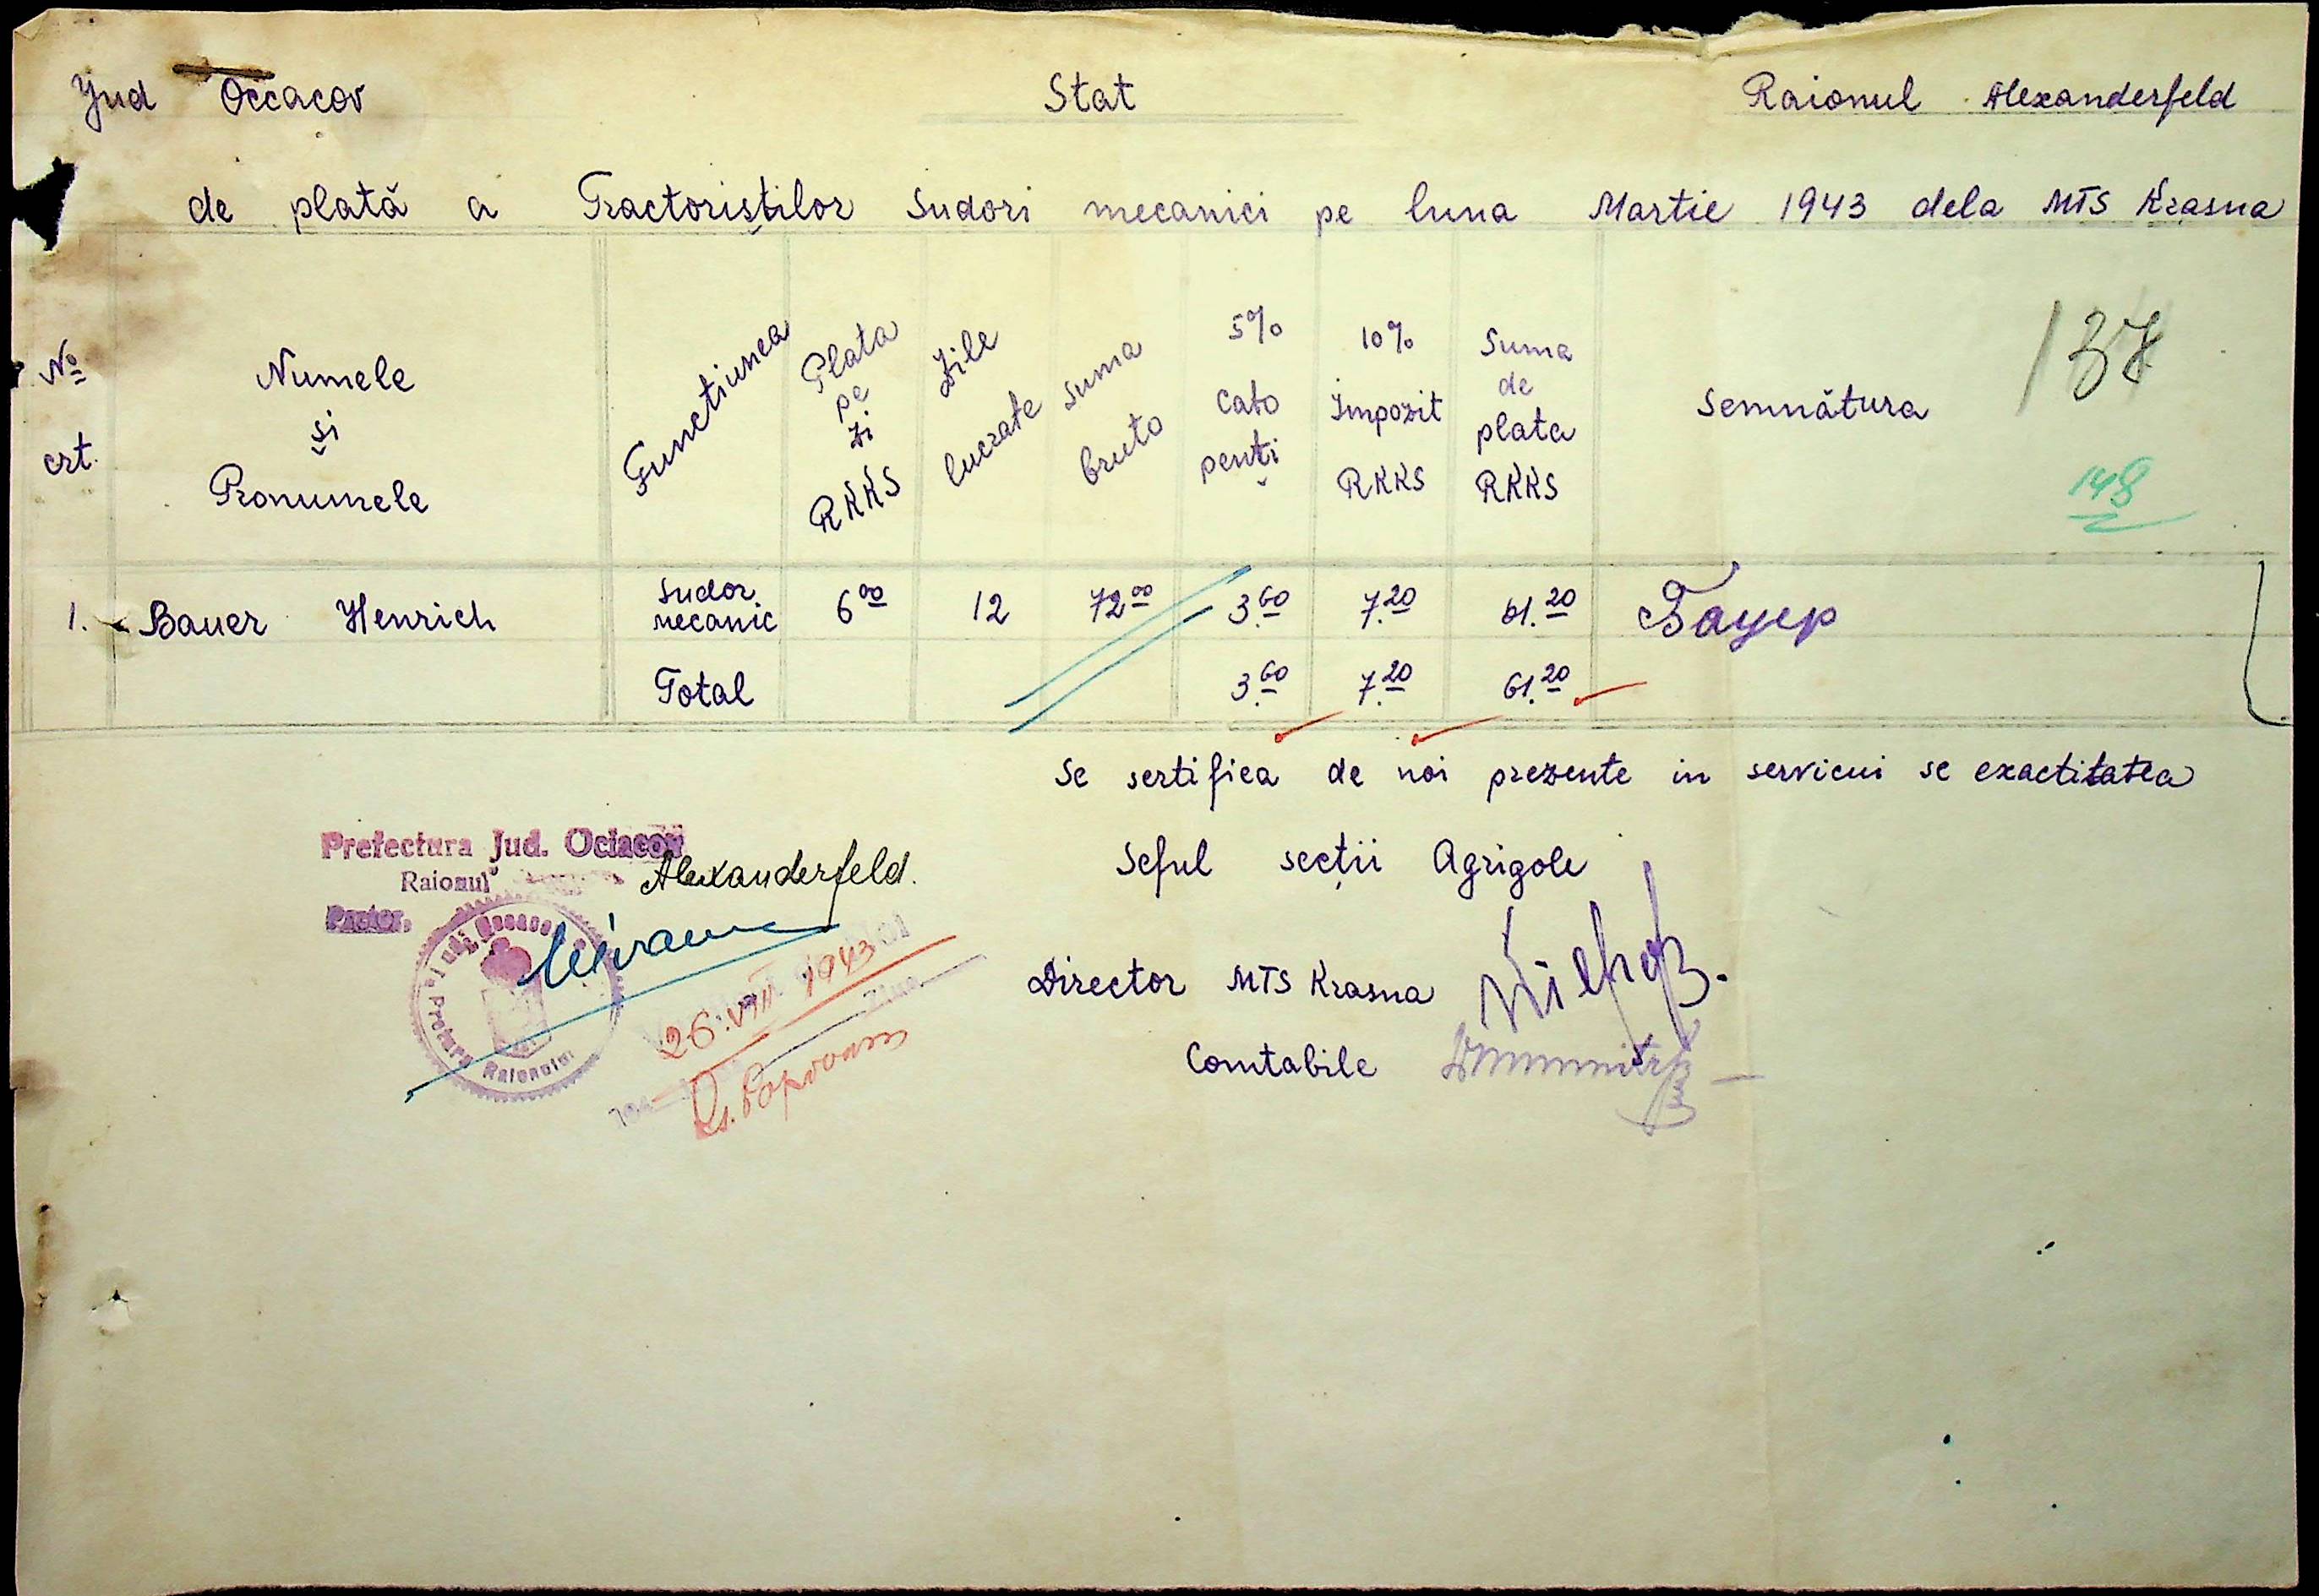 Jud Occacov Stat Raionul Alexanderfeld
de plată a Tractoriștilor Sudori mecanici pe luna Martie 1943 dela MTS Krasna
№ crt. Numele și Pronumele Functiunea Plata pe zi RKKS Zile lucrate suma bruto 5% Cato penți 10% Impozit RKKS Suma de plata RKKS Semnătura
137
148
1. Bauer Henrich Sudor mecanic 6 00 12 72 00 3.60 7.20 61.20 Бауер
Total 3.60 7.20 61.20
Se sertifica de noi prezente in servicui se exactitatea
Prefectura Jud. Ociacov
Raionul Alexanderfeld.
Pretor.
Pretura Raionului
Seful secții Agrigole
Director MTS Krasna
26.VIII 1943
Comtabile